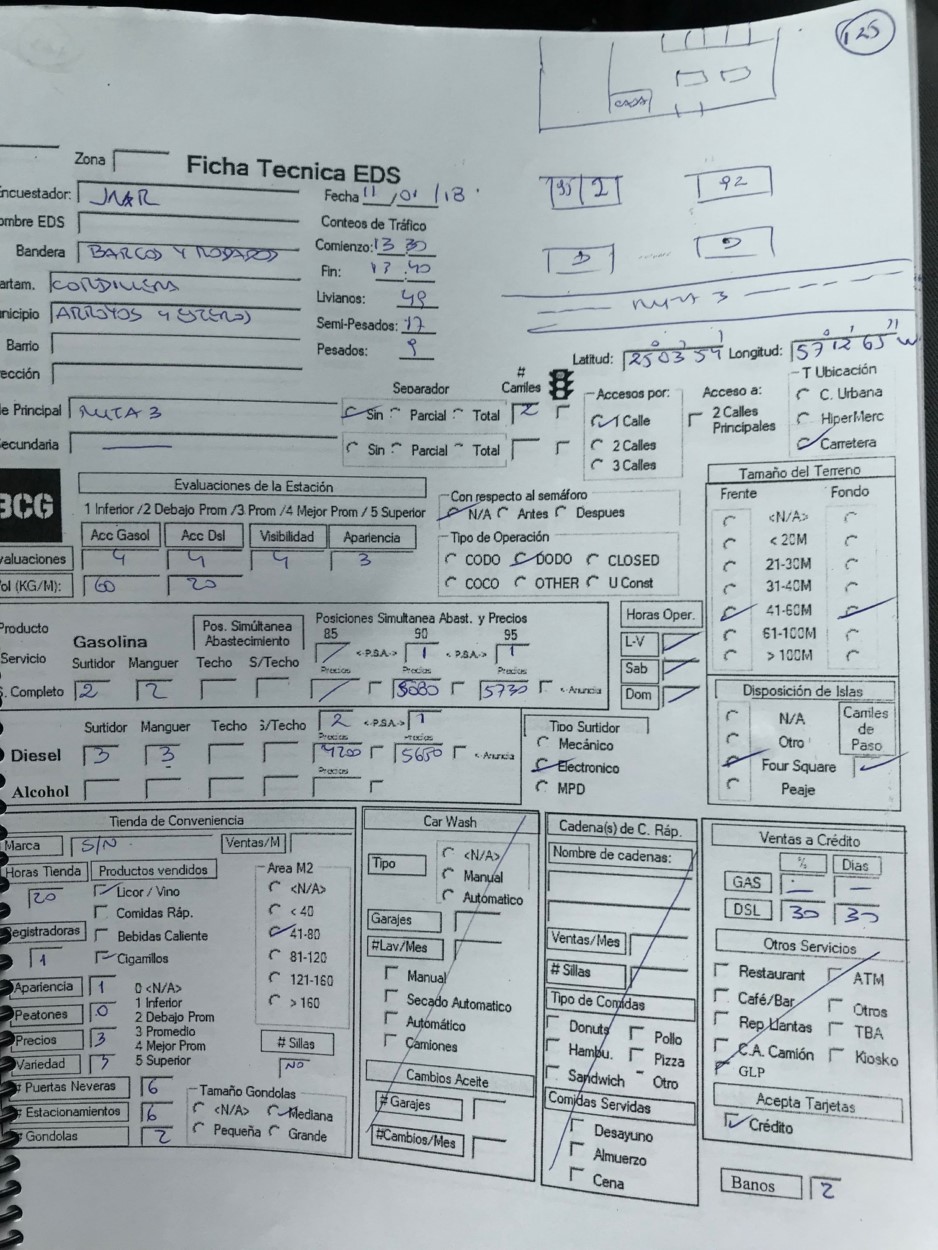 125
CASA
Zona
Ficha Tecnica EDS
Encuestador: JNAR
Fecha 11/01/18
95 2
92
ombre EDS
Conteos de Tráfico
Bandera BARCOS Y RODADOS
Comienzo: 13 30
D D
Fin: 13 40
artam. CORDILLERA
Livianos: 49
RUTA 3
nicipio ARROYOS Y ESTEROS
Semi-Pesados: 17
Barrio
Pesados: 9
Latitud: 250354 Longitud: 571265 W
ección
T Ubicación
Separador
# Carriles
Accesos por:
Acceso a:
C. Urbana
e Principal RUTA 3
Sin Parcial Total 2
1 Calle
2 Calles Principales
HiperMerc
ecundaria
Sin Parcial Total
2 Calles
Carretera
3 Calles
BCG
Evaluaciones de la Estación
Tamaño del Terreno
1 Inferior /2 Debajo Prom /3 Prom /4 Mejor Prom / 5 Superior
Con respecto al semáforo
Frente Fondo
N/A Antes Despues
<N/A>
Acc Gasol Acc Dsl Visibilidad Apariencia
Tipo de Operación
< 20M
valuaciones 4 4 4 3
CODO DODO CLOSED
21-30M
ol (KG/M): 60 20
COCO OTHER U Const
31-40M
41-60M
61-100M
> 100M
Producto
Gasolina
Pos. Simúltanea Abastecimiento
Posiciones Simultanea Abast. y Precios
Horas Oper.
85 90 95
Servicio
<-P.S.A.-> 1 <-P.S.A.-> 1
L-V
Surtidor Manguer Techo S/Techo
Precios Precios Precios
Sab
S. Completo 2 2 5080 5730 <-Anuncia
Dom
Disposición de Islas
Surtidor Manguer Techo S/Techo
2 <-P.S.A.-> 1
Tipo Surtidor
N/A
Carriles de Paso
Precios Precios
Mecánico
Otro
Diesel 3 3 4200 5650 <-Anuncia
Electronico
Four Square
Precios
Alcohol
MPD
Peaje
Tienda de Conveniencia
Car Wash
Cadena(s) de C. Ráp.
Ventas a Crédito
Marca S/N Ventas/M
Tipo
<N/A>
Manual
Automatico
Nombre de cadenas:
% Dias
Horas Tienda Productos vendidos Area M2
GAS - —
20 Licor / Vino <N/A>
DSL 30 30
Comidas Ráp. < 40
Garajes
Otros Servicios
Registradoras Bebidas Caliente 41-80
#Lav/Mes
Ventas/Mes
1 Cigarrillos 81-120
Manual
# Sillas
Restaurant ATM
121-160
Secado Automatico
Tipo de Comidas
Café/Bar Otros
Apariencia 1 0 <N/A> > 160
Automático
Donuts Pollo
Rep Llantas TBA
Peatones 0 1 Inferior
Camiones
Hambu. Pizza
C.A. Camión Kiosko
2 Debajo Prom
Sandwich Otro
GLP
Precios 3 3 Promedio
# Sillas
4 Mejor Prom
NO
Variedad 3 5 Superior
Cambios Aceite
Comidas Servidas
Acepta Tarjetas
# Puertas Neveras 6 Tamaño Gondolas
# Garajes
Desayuno
Crédito
# Estacionamientos 6 <N/A> Mediana
Almuerzo
# Gondolas 2 Pequeña Grande
#Cambios/Mes
Cena
Banos 2